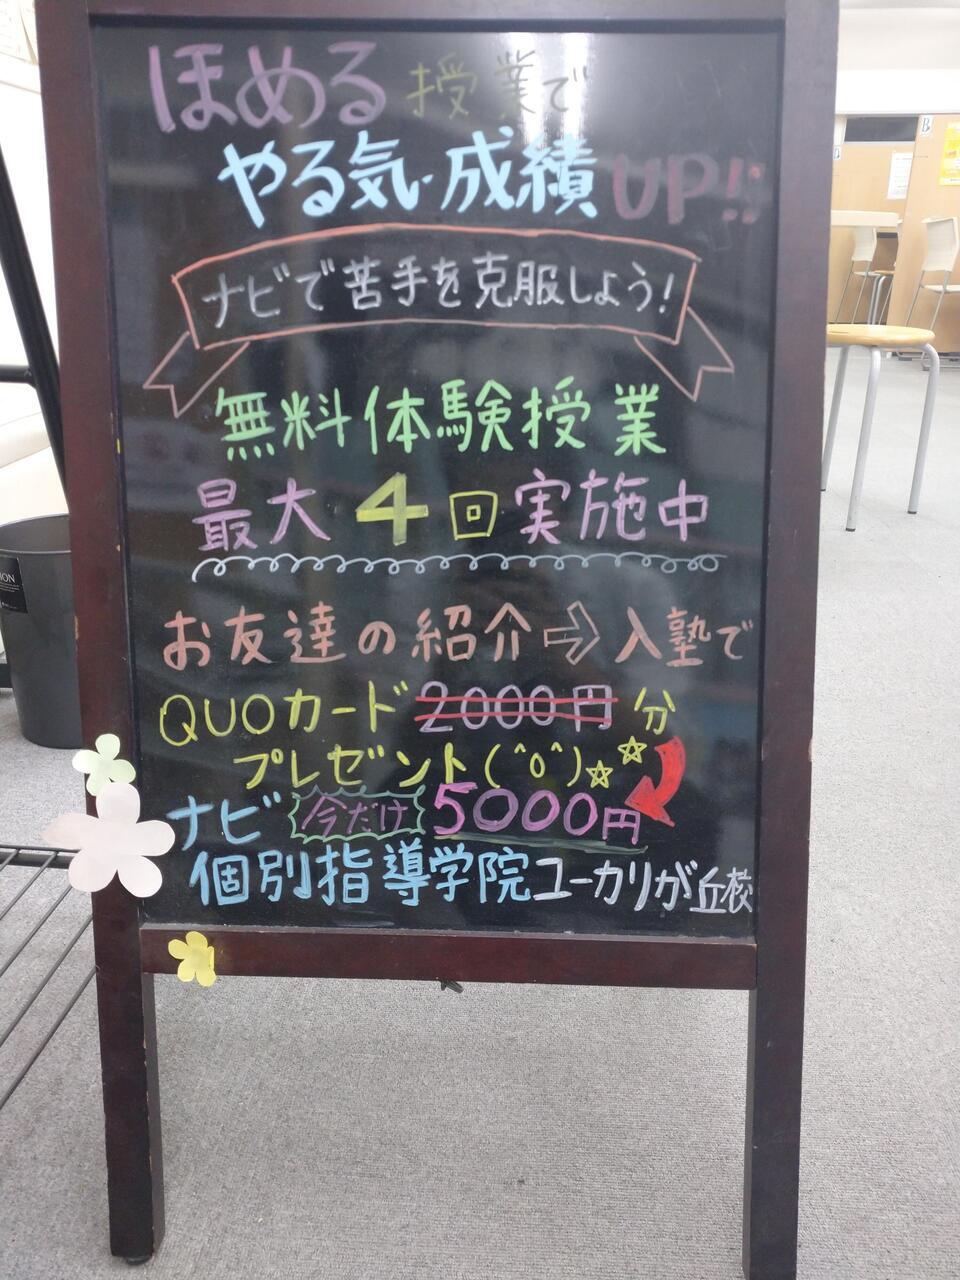 ほめる授業で
やる気・成績UP!!
ナビで苦手を克服しよう!
無料体験授業
最大4回実施中
お友達の紹介⇨入塾で
QUOカード2000円分
プレゼント(^o^)☆☆
ナビ 今だけ 5000円
個別指導学院ユーカリが丘校
ION
B